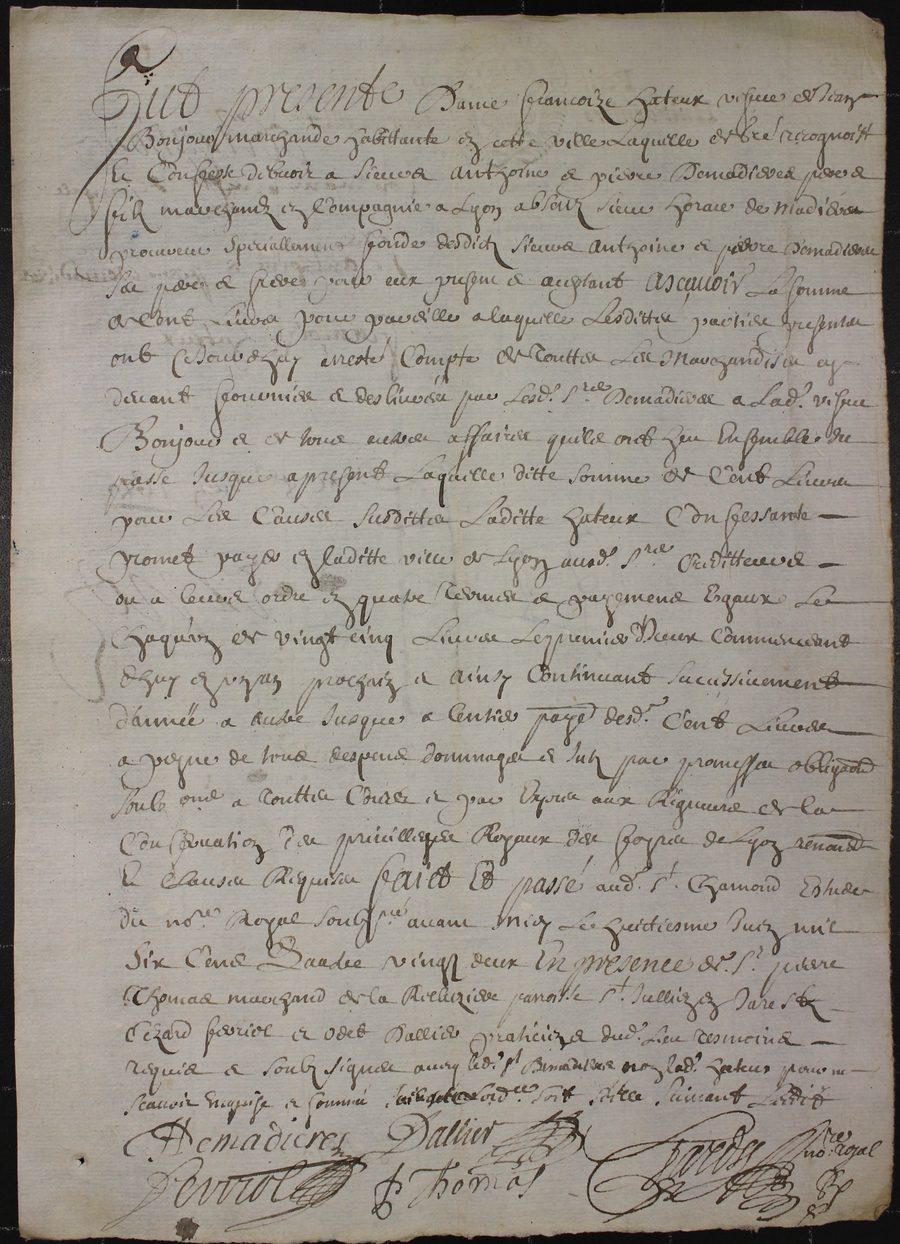 Fut presente Dame francoize hateur vefve de Jean
Bonjour marchande habittante en cette ville Laquelle de gré recognoist
et Confesse debvoir a Sieurs Anthoine et pierre Demadieres pere et
filz marchandz en Compagnie a Lyon absentz sieur horace de Madieres
procureur speciallement fondé desdictz Sieurs Anthoine et pierre Demadieres
ses pere et frere pour eux present et aceptant Ascavoir La somme
de Cent Livres pour pareille a laquelle Lesdittes parties presentes
ont Cejourdhuy arresté Compte de Touttes Les Marchandises cy
devant fournies et deslivrées par Lesd. Srs Demadieres a Lad. vefve
Bonjour et de tous autres affaires quils ont heu Ensemble du
passe Jusque a present Laquelle ditte somme de Cent Livres
pour Les Causes Susdittes Laditte hateur Confessante
promet payer en laditte ville de Lyon ausd. Srs Creditteurs
ou a leurs ordre en quatre Termes et payements Egaux de
Chaqun de vingt cinq Livres Le premier Diceux Commencant
dhuy en un an prochain et ainsy Continuant successivement
d'année a autre Jusque a lentier paye desd. Cent Livres
a peyne de tous despens dommages et Intz par promesse obligaon
soubz ons a Touttes Cours et par Expres aux Rigueurs de la
Conservation des privilleges Royaux des foyres de Lyon renonaon
et Clauses Requises faict Et passé aud. St. Chamond Estude
du nore Royal soubzne avant midy Le huictiesme Juin mil
Six Cens Quatre vingtz deux En presence de Sr pierre
Thomas marchand de la paroisse St. Jullien en Jarestz
Cezard ferriol et odet Dallier praticiens dud. Lieu tesmoins
requis et soubz signes avec led. Sr Demadieres non lad. hateur pour ne
scavoir Enquise et sommé soit scelle suivant Ledit
Demadieres Dallier
Ferriol P Thomas nore royal